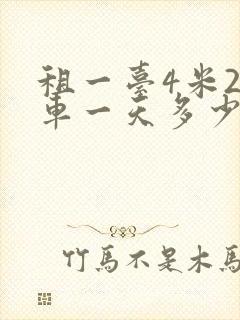 租一臺4米2
車一天多少
竹馬不是木馬